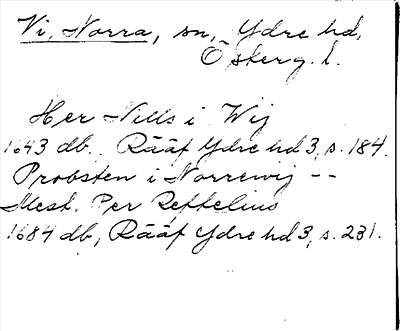 Vi, Norra, sn, Ydre hd,
Österg. l.
Her Nills i Wij
1643 db. Rääf Ydre hd 3, s. 184.
Probsten i Norrewij --
Mest. Per Reftelius
1684 db, Rääf Ydre hd 3, s. 231.